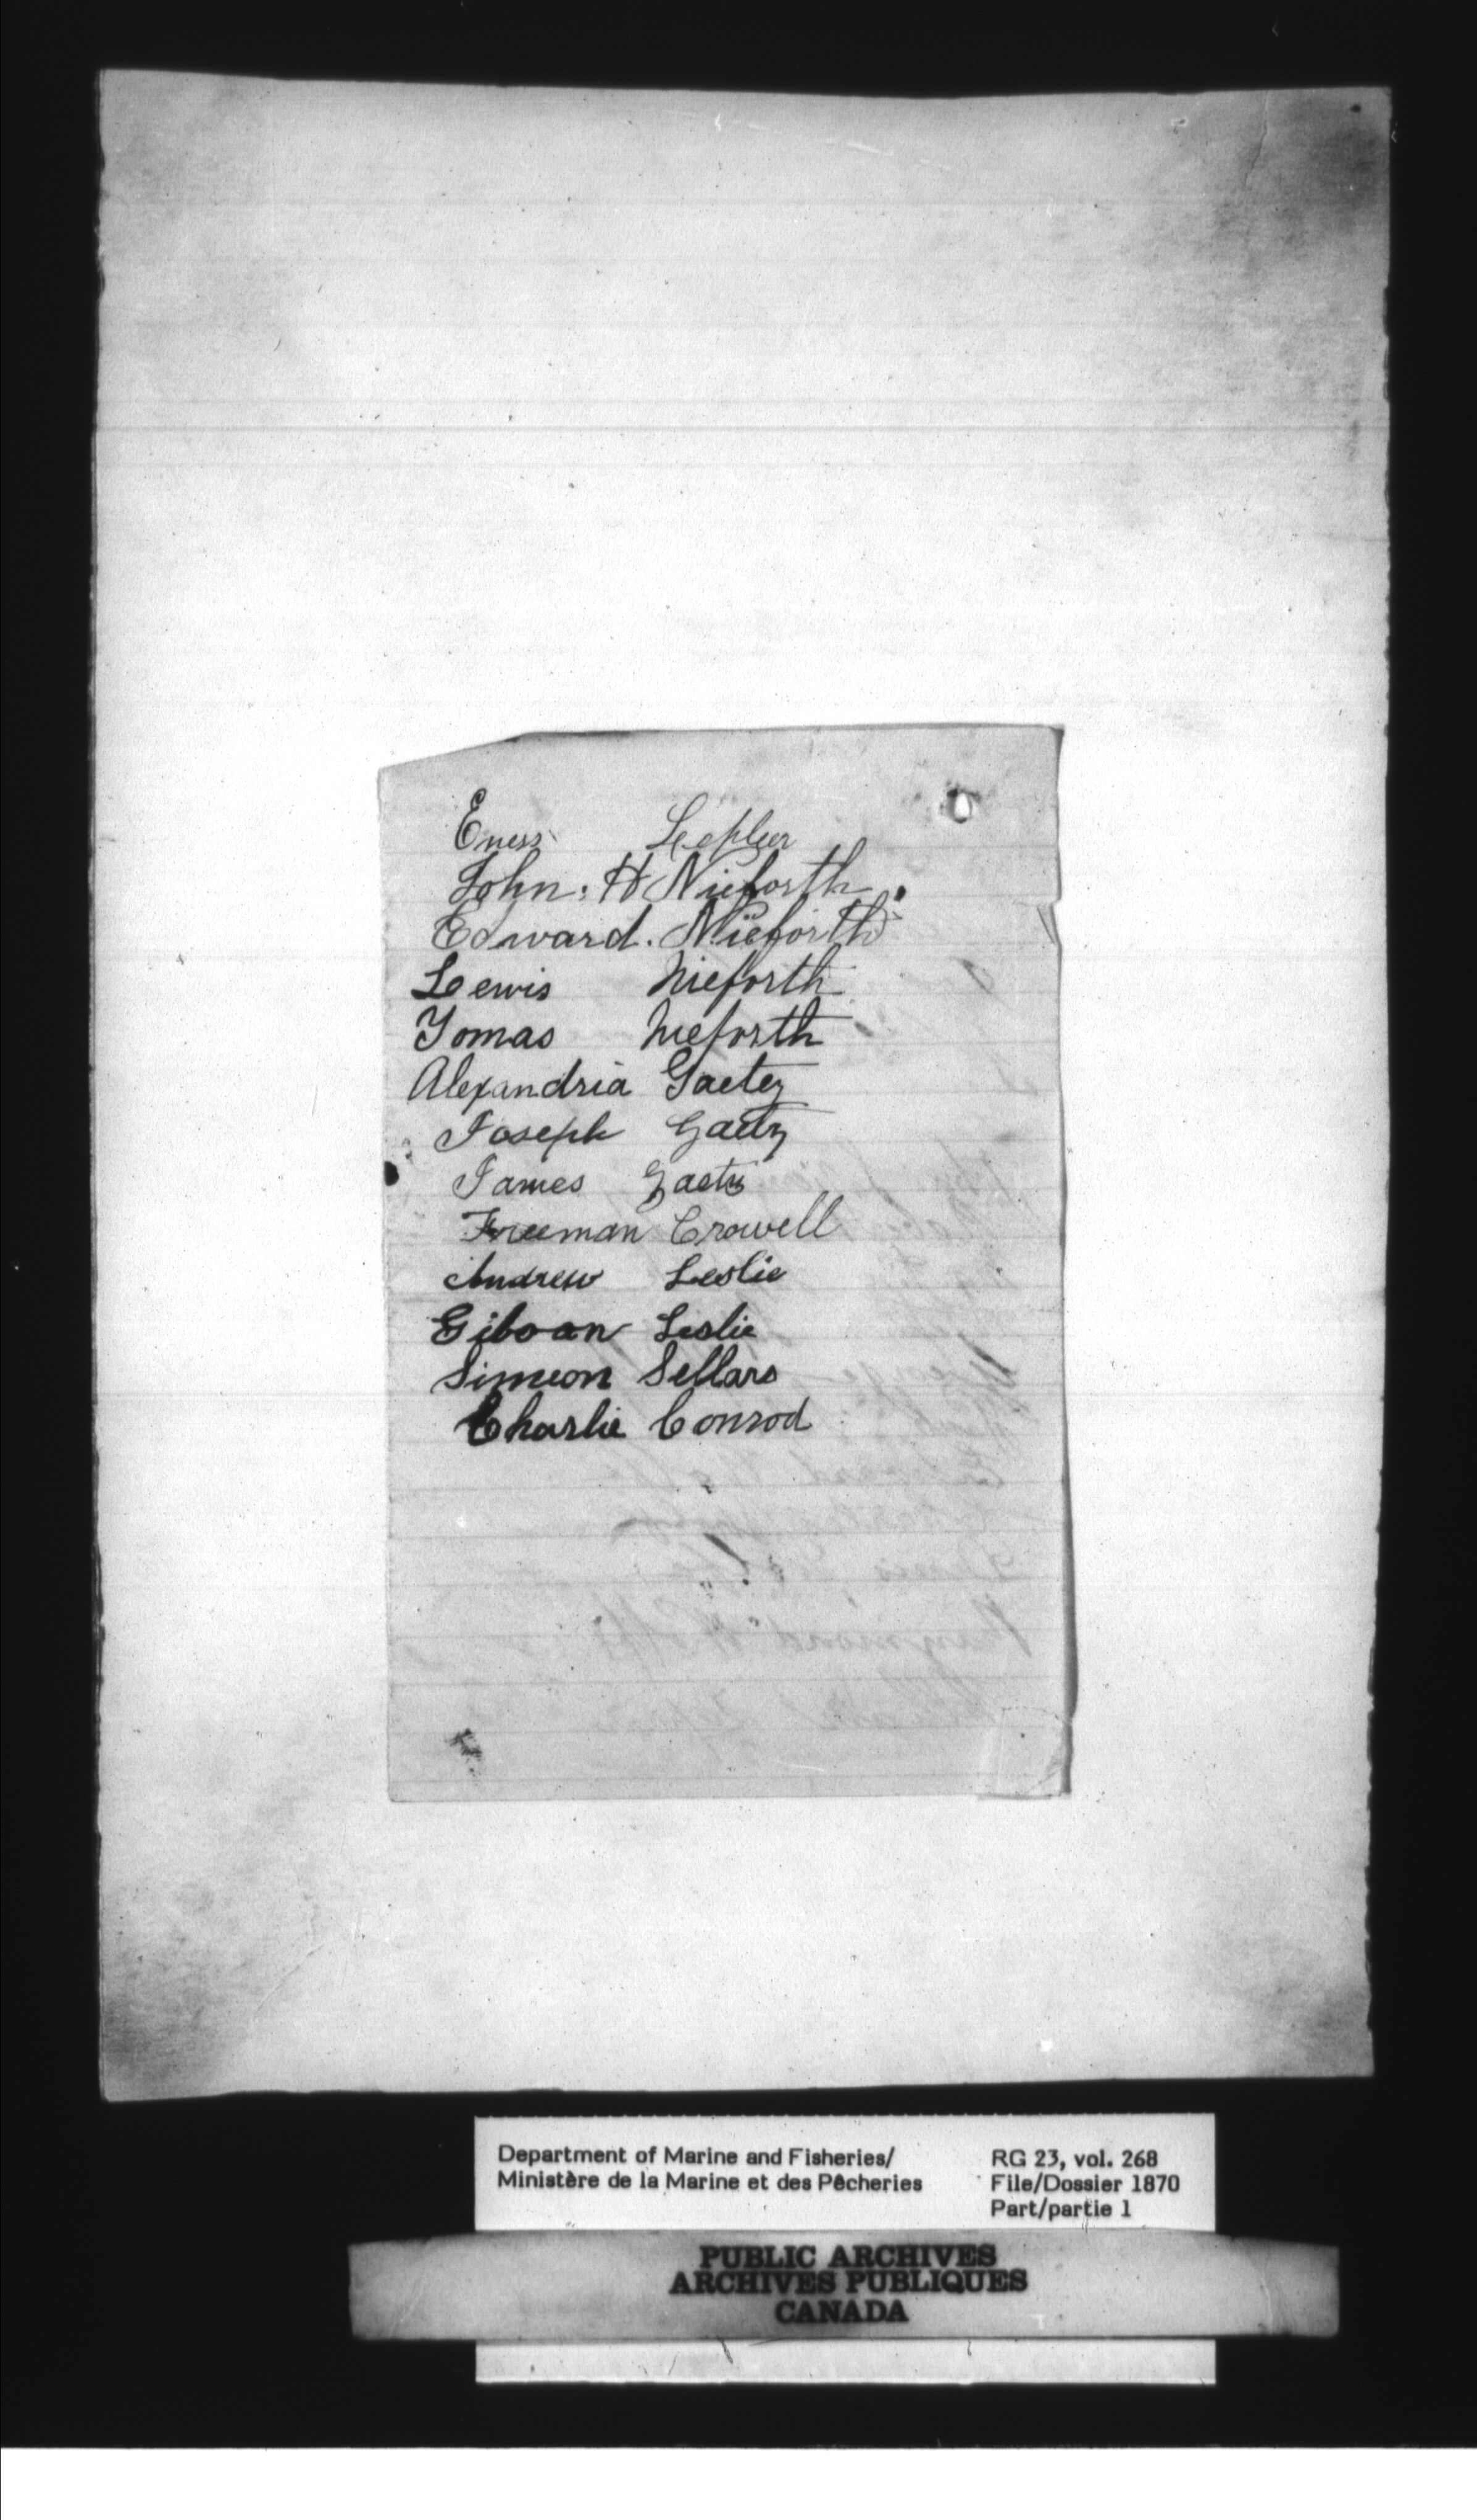 Eness Lepler
John. H Nieforth.
Edward. Nieforth
Lewis Nieforth
Tomas Nieforth
Alexandria Gaetz
Joseph Gaetz
James Gaetz
Freeman Crowell
Andrew Leslie
Leslie
Simeon Sellars
Charlie Conrod
Department of Marine and Fisheries/
Ministère de la Marine et des Pêcheries
RG 23, vol. 268
File/Dossier 1870
Part/partie 1
PUBLIC ARCHIVES
ARCHIVES PUBLIQUES
CANADA